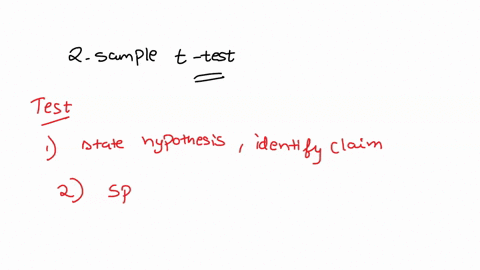 2-sample t-test
Test
1) state hypothesis, identify claim
2) sp